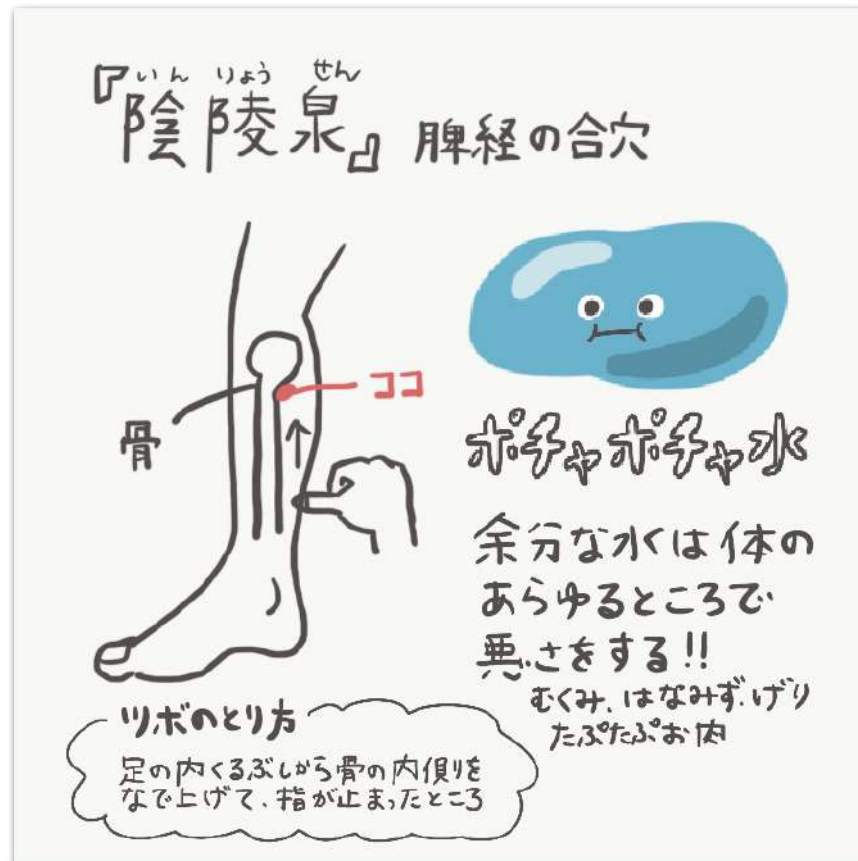 『陰陵泉』 脾経の合穴
いん りょう せん
ココ
骨
ポチャポチャ水
余分な水は体の
あらゆるところで
悪さをする!!
むくみ、はなみず、げり
たぷたぷお肉
ツボのとり方
足の内くるぶしから骨の内側りを
なで上げて、指が止まったところ